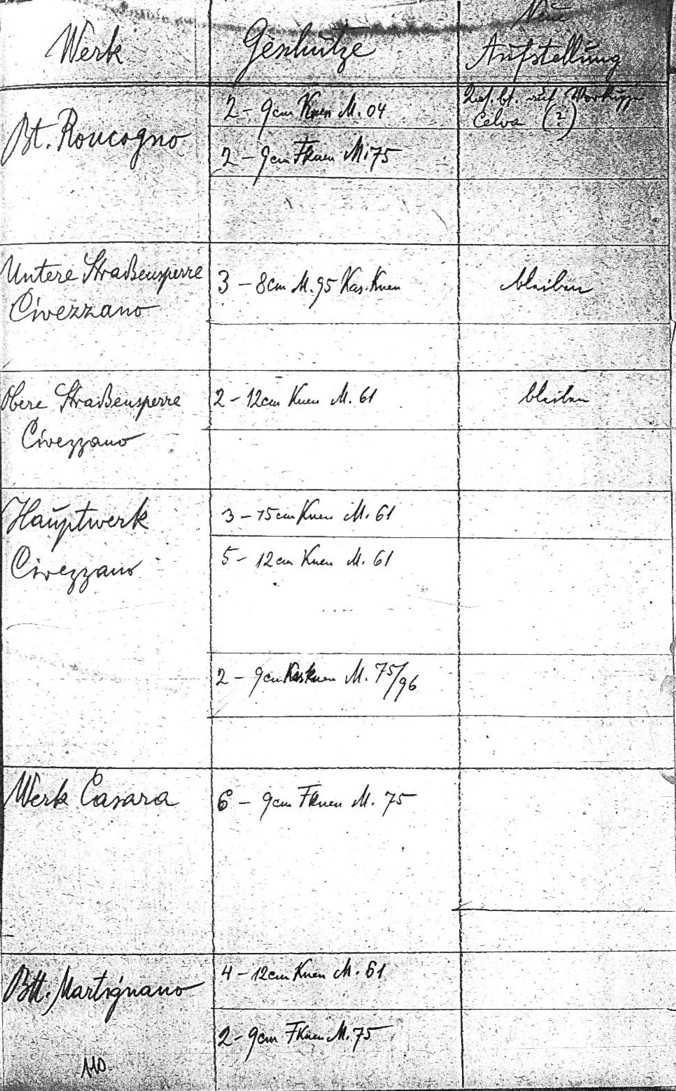 Werk
Geschütze
Neue
Aufstellung
Bt. Roncogno
2 - 9cm Knen M. 04
Celva (?)
2 - 9cm Fknen M. 75
Untere Straßensperre
Civezzano
3 - 8cm M. 95 Kas. Knen
bleiben
Obere Straßensperre
Civezzano
2 - 12cm Knen M. 61
bleiben
Hauptwerk
Civezzano
3 - 15cm Knen M. 61
5 - 12cm Knen M. 61
2 - 9cm Kasknen M. 75/96
Werk Casara
6 - 9cm Fknen M. 75
Btt. Martignano
4 - 12cm Knen M. 61
2 - 9cm Fknen M. 75
110.